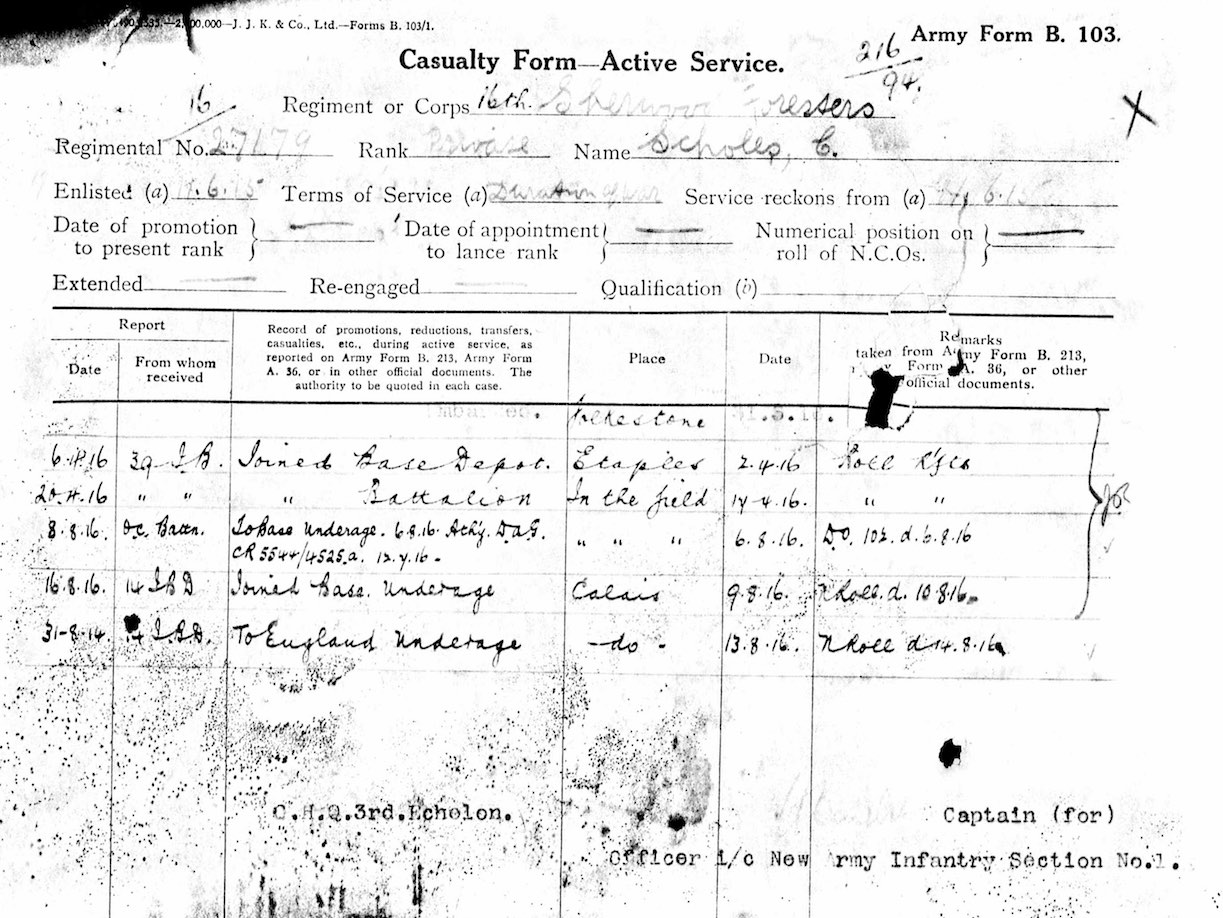 000—J. J. K. & Co., Ltd.—Forms B. 103/1.
Army Form B. 103.
Casualty Form—Active Service.
216
94.
16
Regiment or Corps 16th. Sherwood Foresters
Regimental No. 27179 Rank Private Name Scholes, C.
Enlisted (a) 6.15 Terms of Service (a) Duration of war Service reckons from (a) 6.15
Date of promotion to present rank — Date of appointment to lance rank — Numerical position on roll of N.C.Os. —
Extended — Re-engaged — Qualification (b)
Report
Date
From whom received
Record of promotions, reductions, transfers, casualties, etc., during active service, as reported on Army Form B. 213, Army Form A. 36, or in other official documents. The authority to be quoted in each case.
Place
Date
Remarks taken from Army Form B. 213, Form A. 36, or other official documents.
Embarked. Folkestone
6.4.16 39 I.B. Joined Base Depot. Etaples 2.4.16 Roll
20.4.16 " " " Battalion In the field 17.4.16. " "
8.8.16. O.C. Battn. To Base Underage. 6.8.16. Athy. D.A.G. " " " 6.8.16. D.O. 102. d. 6.8.16
CR 5544/4525.a. 12.7.16 -
16.8.16. 14 I B D Joined Base. Underage Calais 9.8.16. N Roll. d. 10.8.16.
31-8-14. 14 I.B.D. To England Underage —do - 13.8.16. N Roll d 14.8.16
G.H.Q.3rd.Echelon.
Captain (for)
Officer i/c New Army Infantry Section No.1.